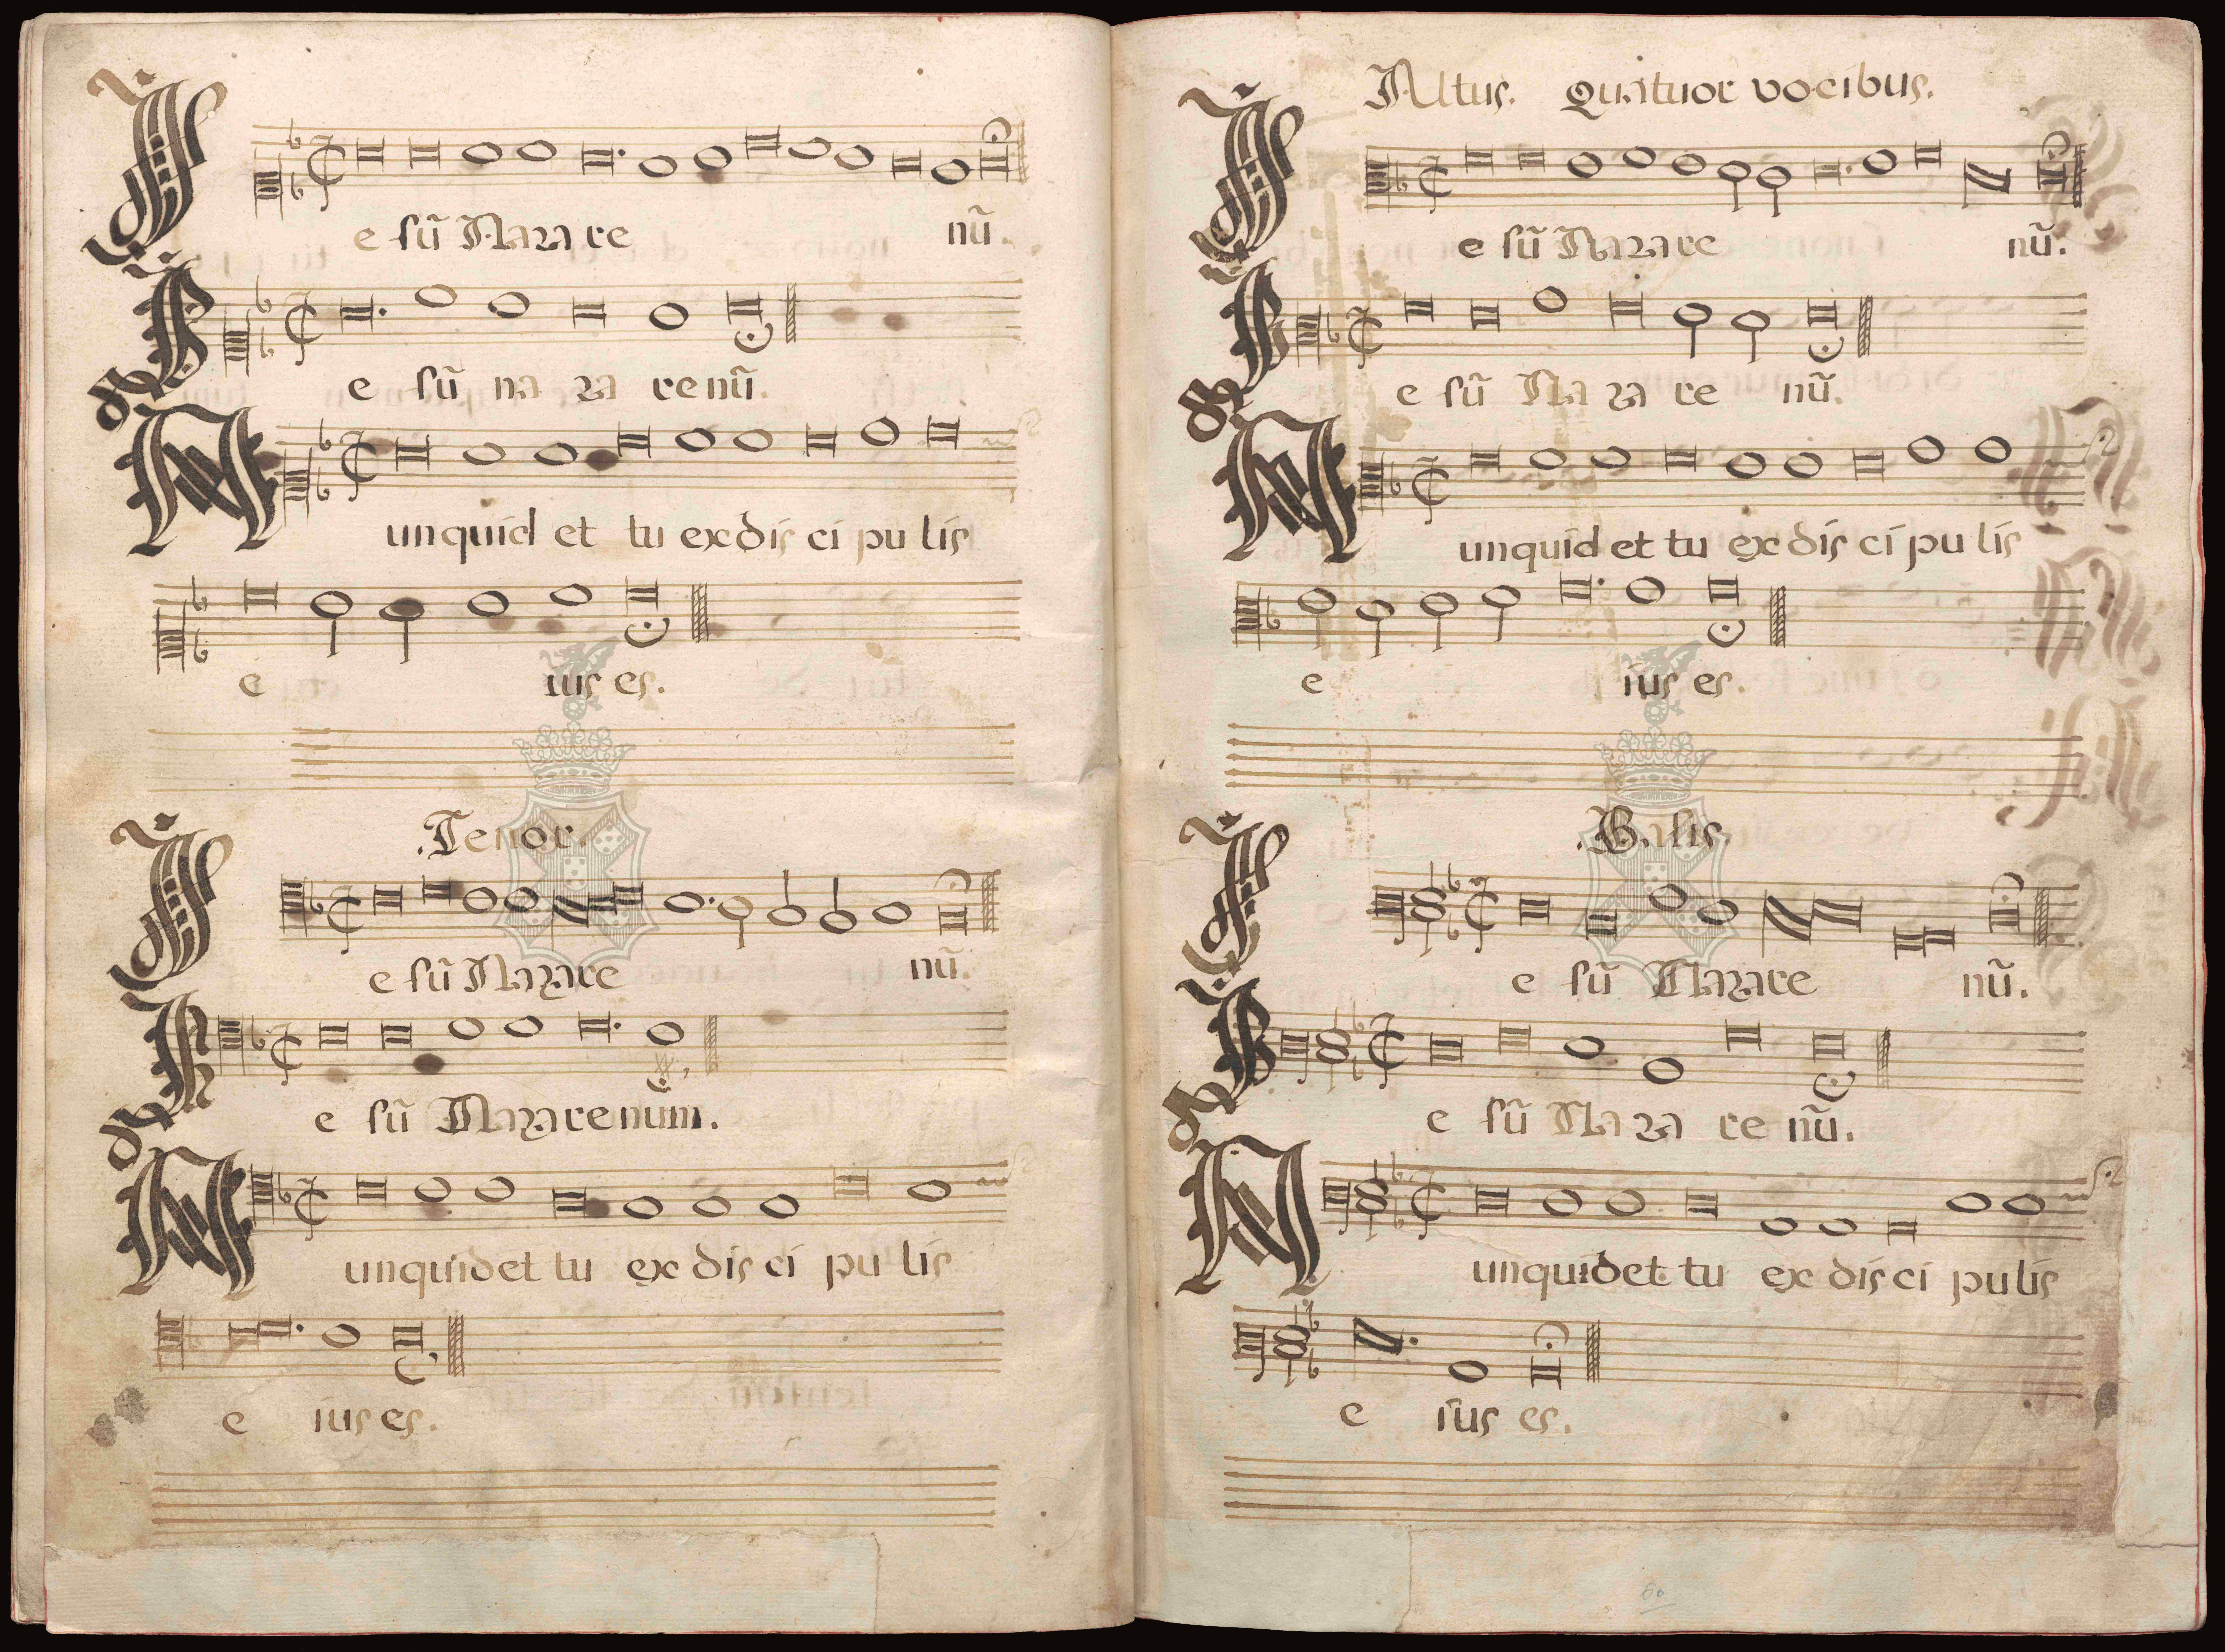 Ie sũ Naza re nũ.
Ie sũ na za re nũ.
& Nunquid et tu ex dis ci pu lis
e ius es.
.Tenor.
Ie sũ Naza re nũ.
Ie sũ Naza re num.
& Nunquid et tu ex dis ci pu lis
e ius es.
Altus. Quatuor vocibus.
Ie sũ Naza re nũ.
Ie sũ Na za re nũ.
& Nunquid et tu ex dis ci pu lis
e ius es.
.Basis.
Ie sũ Naza re nũ.
Ie sũ Na za re nũ.
& Nunquid et tu ex dis ci pu lis
e ius es.
60